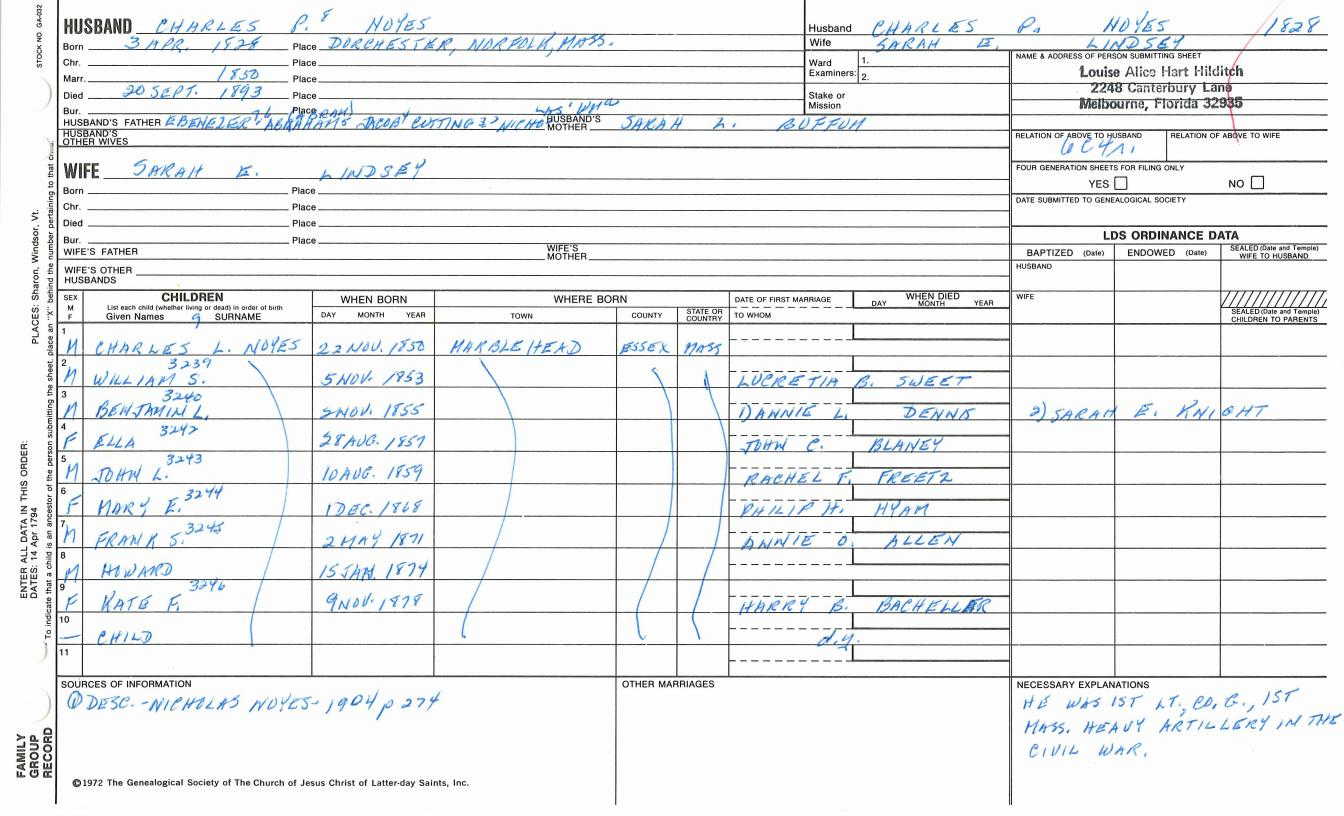 STOCK NO. GA-032
HUSBAND CHARLES P. 8 NOYES
Born 3 APR. 1828 Place DORCHESTER, NORFOLK, MASS.
Chr. Place
Marr. 1850 Place
Died 20 SEPT. 1893 Place
Bur. Place
HUSBAND'S FATHER EBENEZER ABRAHAM JACOB CUTTING NICHO HUSBAND'S MOTHER SARAH L. BUFFUM
HUSBAND'S OTHER WIVES
WIFE SARAH E. LINDSEY
Born Place
Chr. Place
Died Place
Bur. Place
WIFE'S FATHER WIFE'S MOTHER
WIFE'S OTHER HUSBANDS
Husband CHARLES P. NOYES 1828
Wife SARAH E. LINDSEY
Ward Examiners: 1.
2.
Stake or Mission
NAME & ADDRESS OF PERSON SUBMITTING SHEET
Louise Alice Hart Hilditch
2248 Canterbury Lane
Melbourne, Florida 32935
RELATION OF ABOVE TO HUSBAND RELATION OF ABOVE TO WIFE
6C4r.
FOUR GENERATION SHEETS FOR FILING ONLY
YES NO
DATE SUBMITTED TO GENEALOGICAL SOCIETY
LDS ORDINANCE DATA
BAPTIZED (Date) ENDOWED (Date) SEALED (Date and Temple) WIFE TO HUSBAND
HUSBAND
WIFE
SEALED (Date and Temple) CHILDREN TO PARENTS
SEX M F CHILDREN WHEN BORN WHERE BORN DATE OF FIRST MARRIAGE WHEN DIED
List each child (whether living or dead) in order of birth
Given Names 9 SURNAME DAY MONTH YEAR TOWN COUNTY STATE OR COUNTRY TO WHOM DAY MONTH YEAR
1 M CHARLES L. NOYES 22 NOV. 1850 MARBLEHEAD ESSEX MASS
2 M WILLIAM S. 3239 5 NOV. 1853 LUCRETIA B. SWEET
3 M BENJAMIN L. 3240 2 NOV. 1855 DANNIE L. DENNIS 2) SARAH E. KNIGHT
4 F ELLA 3242 28 AUG. 1857 JOHN C. BLANEY
5 M JOHN L. 3243 10 AUG. 1859 RACHEL F. FREETZ
6 F MARY E. 3244 1 DEC. 1868 PHILIP H. HYAM
7 M FRANK S. 3245 2 MAY 1871 ANNIE O. ALLEN
8 M HOWARD 15 JAN. 1874
9 F KATE F. 3246 9 NOV. 1878 HARRY B. BACHELLER
10 — CHILD d.y.
11
SOURCES OF INFORMATION
① DESC. - NICHOLAS NOYES - 1904 p 274
OTHER MARRIAGES
NECESSARY EXPLANATIONS
HE WAS 1ST LT., CO. G., 1ST
MASS. HEAVY ARTILLERY IN THE
CIVIL WAR.
©1972 The Genealogical Society of The Church of Jesus Christ of Latter-day Saints, Inc.
FAMILY GROUP RECORD
ENTER ALL DATA IN THIS ORDER:
DATES: 14 Apr 1794
PLACES: Sharon, Windsor, Vt.
To indicate that a child is an ancestor of the person submitting the sheet, place an "X" behind the number pertaining to that